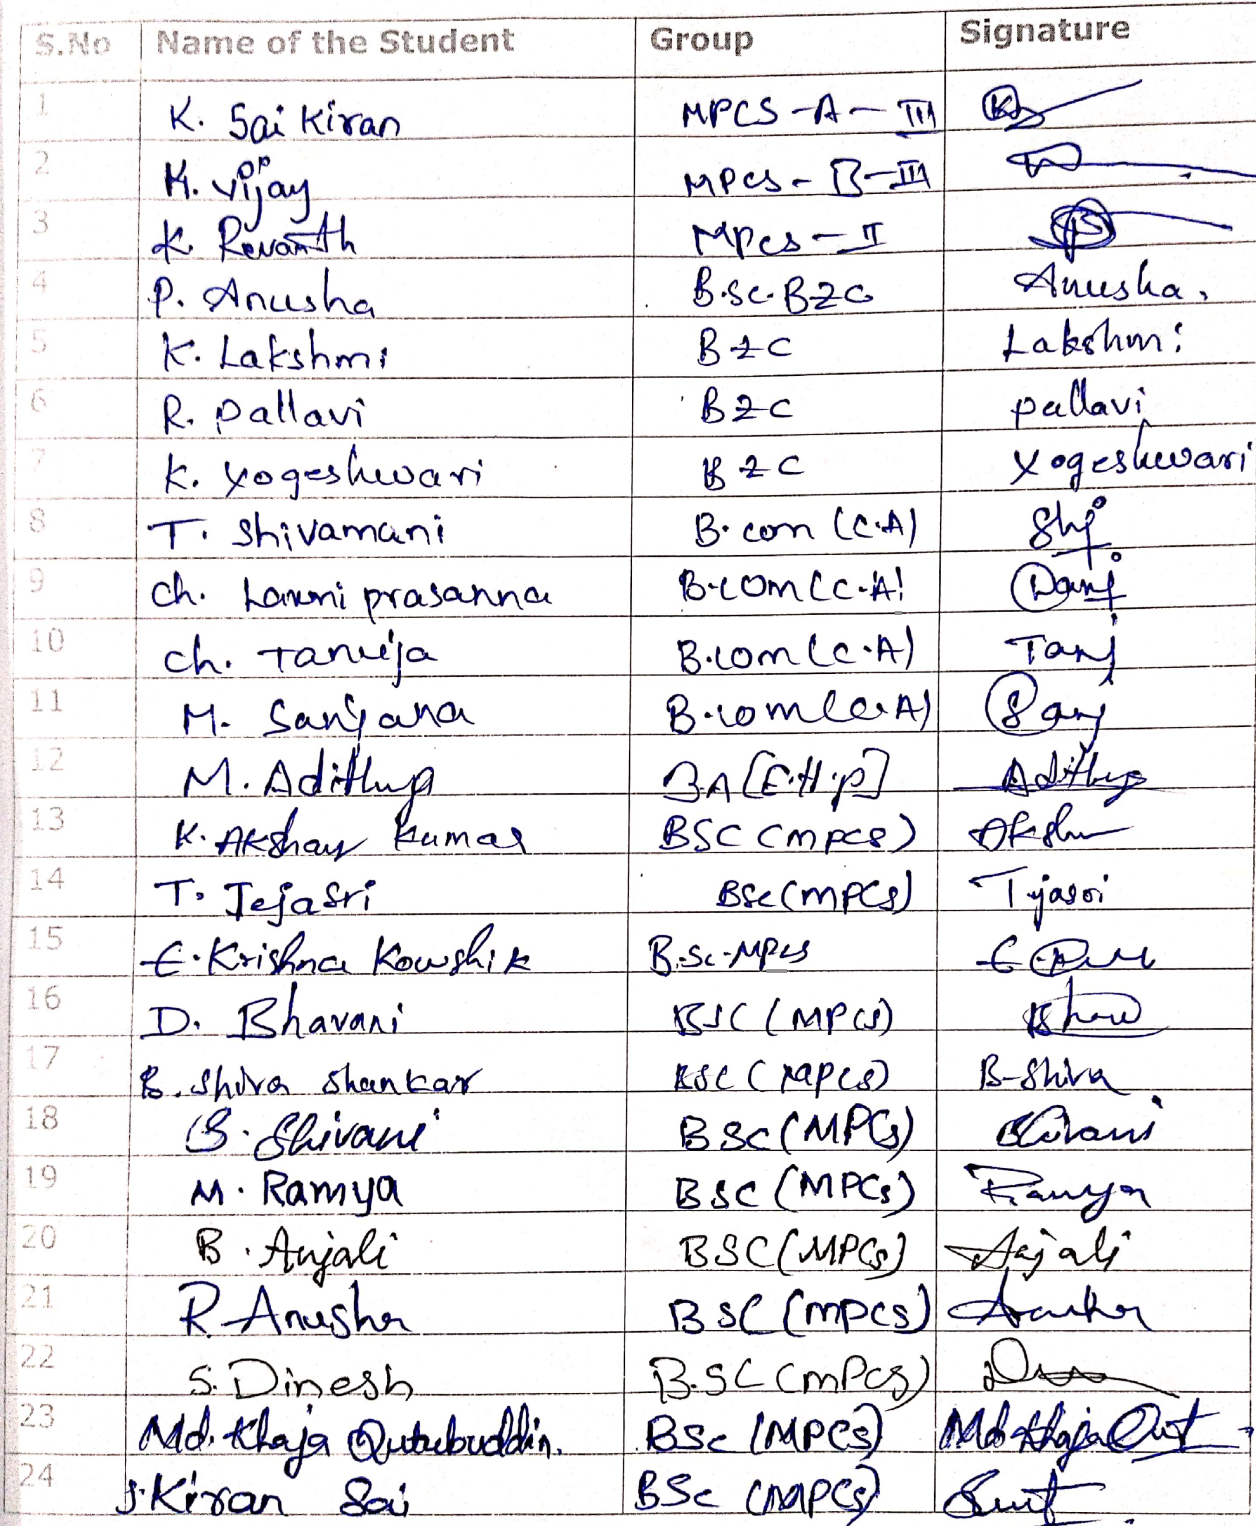 S.No Name of the Student Group Signature
1 K. Sai Kiran MPCS-A-III
2 K. Vijay MPCS-B-III
3 K Revanth Mpcs-II
4 P. Anusha B.sc.BZC Anusha.
5 K. Lakshmi BZC Lakshmi
6 R. pallavi BZC pallavi
7 K. Yogeshwari BZC Yogeshwari
8 T. Shivamani B.com (C.A)
9 ch. Laxmi prasanna B.com(C.A)
10 ch. Tanuja B.com(C.A) Tanj
11 M. Sanjana B.com(C.A) Sanj
12 M. Adithya BA[E.H.P] Adithya
13 K. Akshay Kumar BSC (mpcs)
14 T. Tejasri BSc(mPCs) Tejasri
15 E. Krishna Kowshik B.Sc.MPCS
16 D. Bhavani BSC (MPCS)
17 B. Shiva Shankar BSC (MPCS) B-Shiva
18 B. Shivani BSC (MPCs) Shivani
19 M. Ramya BSC (MPCs) Ramya
20 B. Anjali BSC (MPCs) Anjali
21 R. Anusha BSC (mpcs) Anusha
22 S. Dinesh B.SC (mPCs)
23 Md. Khaja Qutubuddin. BSc (MPCS) Md Khaja Qut
24 J. Kiran Sai BSc (MPCS)